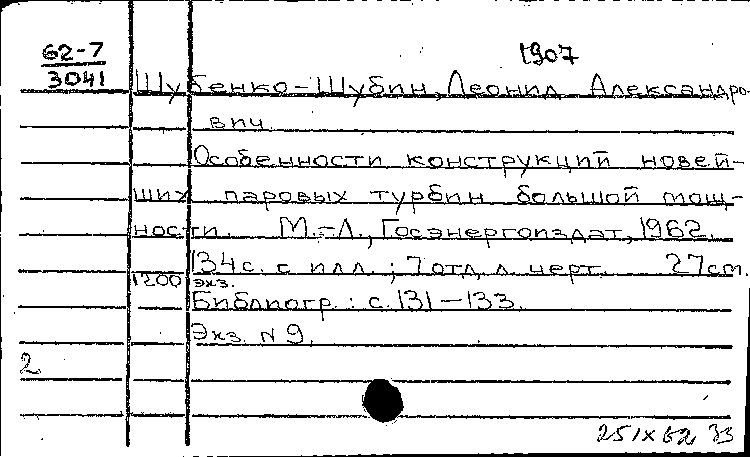 62-7
3041
1907
Шубенко-Шубин, Леонид Александро-
вич
Особенности конструкций новей-
ших паровых турбин большой мощ-
ности. М.-Л., Госэнергоиздат, 1962.
134 с. с илл.; 7 отд. л. черт. 27 cm.
1200 экз.
Библиогр.: с. 131-133.
Экз. N 9.
2
25 IX 62 33